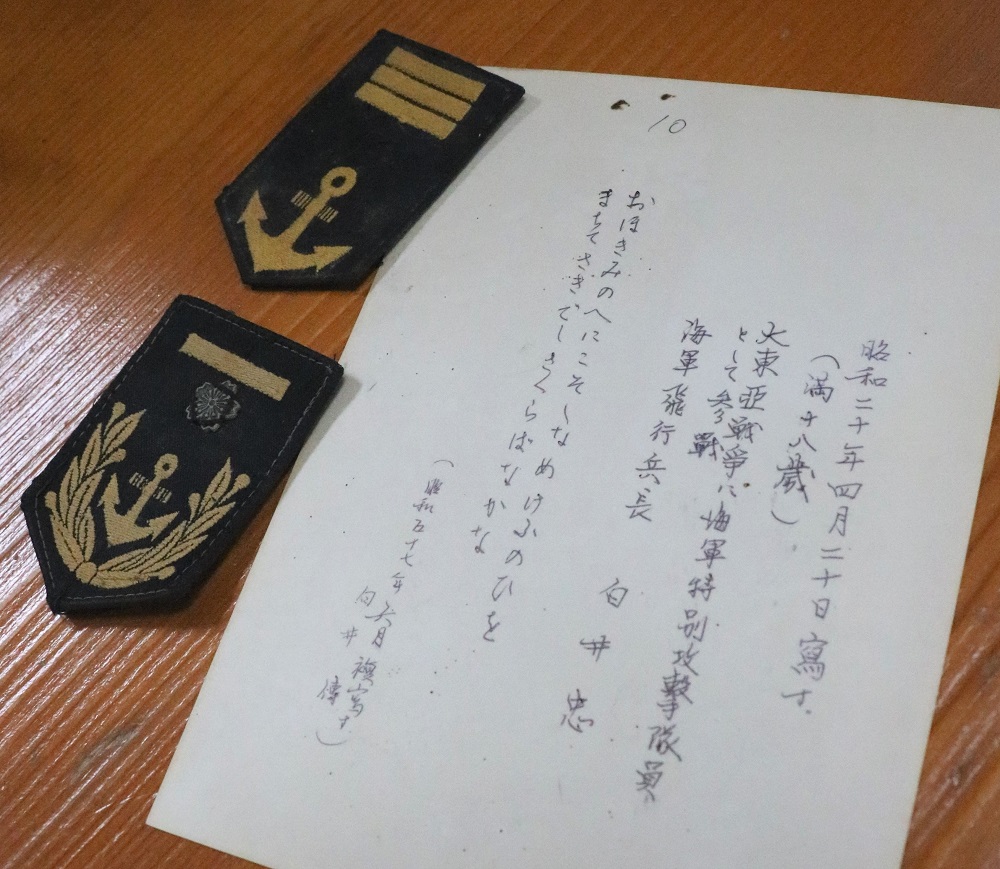 10
昭和二十年四月二十日寫す.
(満十八歳)
大東亜戦爭に海軍特別攻撃隊員
として参戰
海軍飛行兵長
白井忠
おほきみのへにこそしなめけふのひを
まちてさきでしさくらばなかな
(昭和五十七年六月複寫す
白井偉)